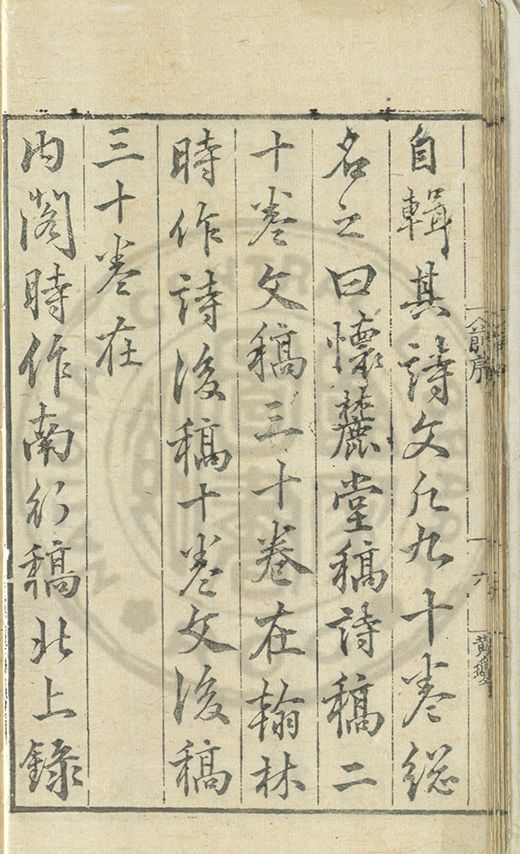 自輯其詩文凡九十卷總
名之曰懷麓堂稿詩稿二
十卷文稿三十卷在翰林
時作詩後稿十卷文後稿
三十卷在
内閣時作南行稿北上錄
序
六
黄瓊